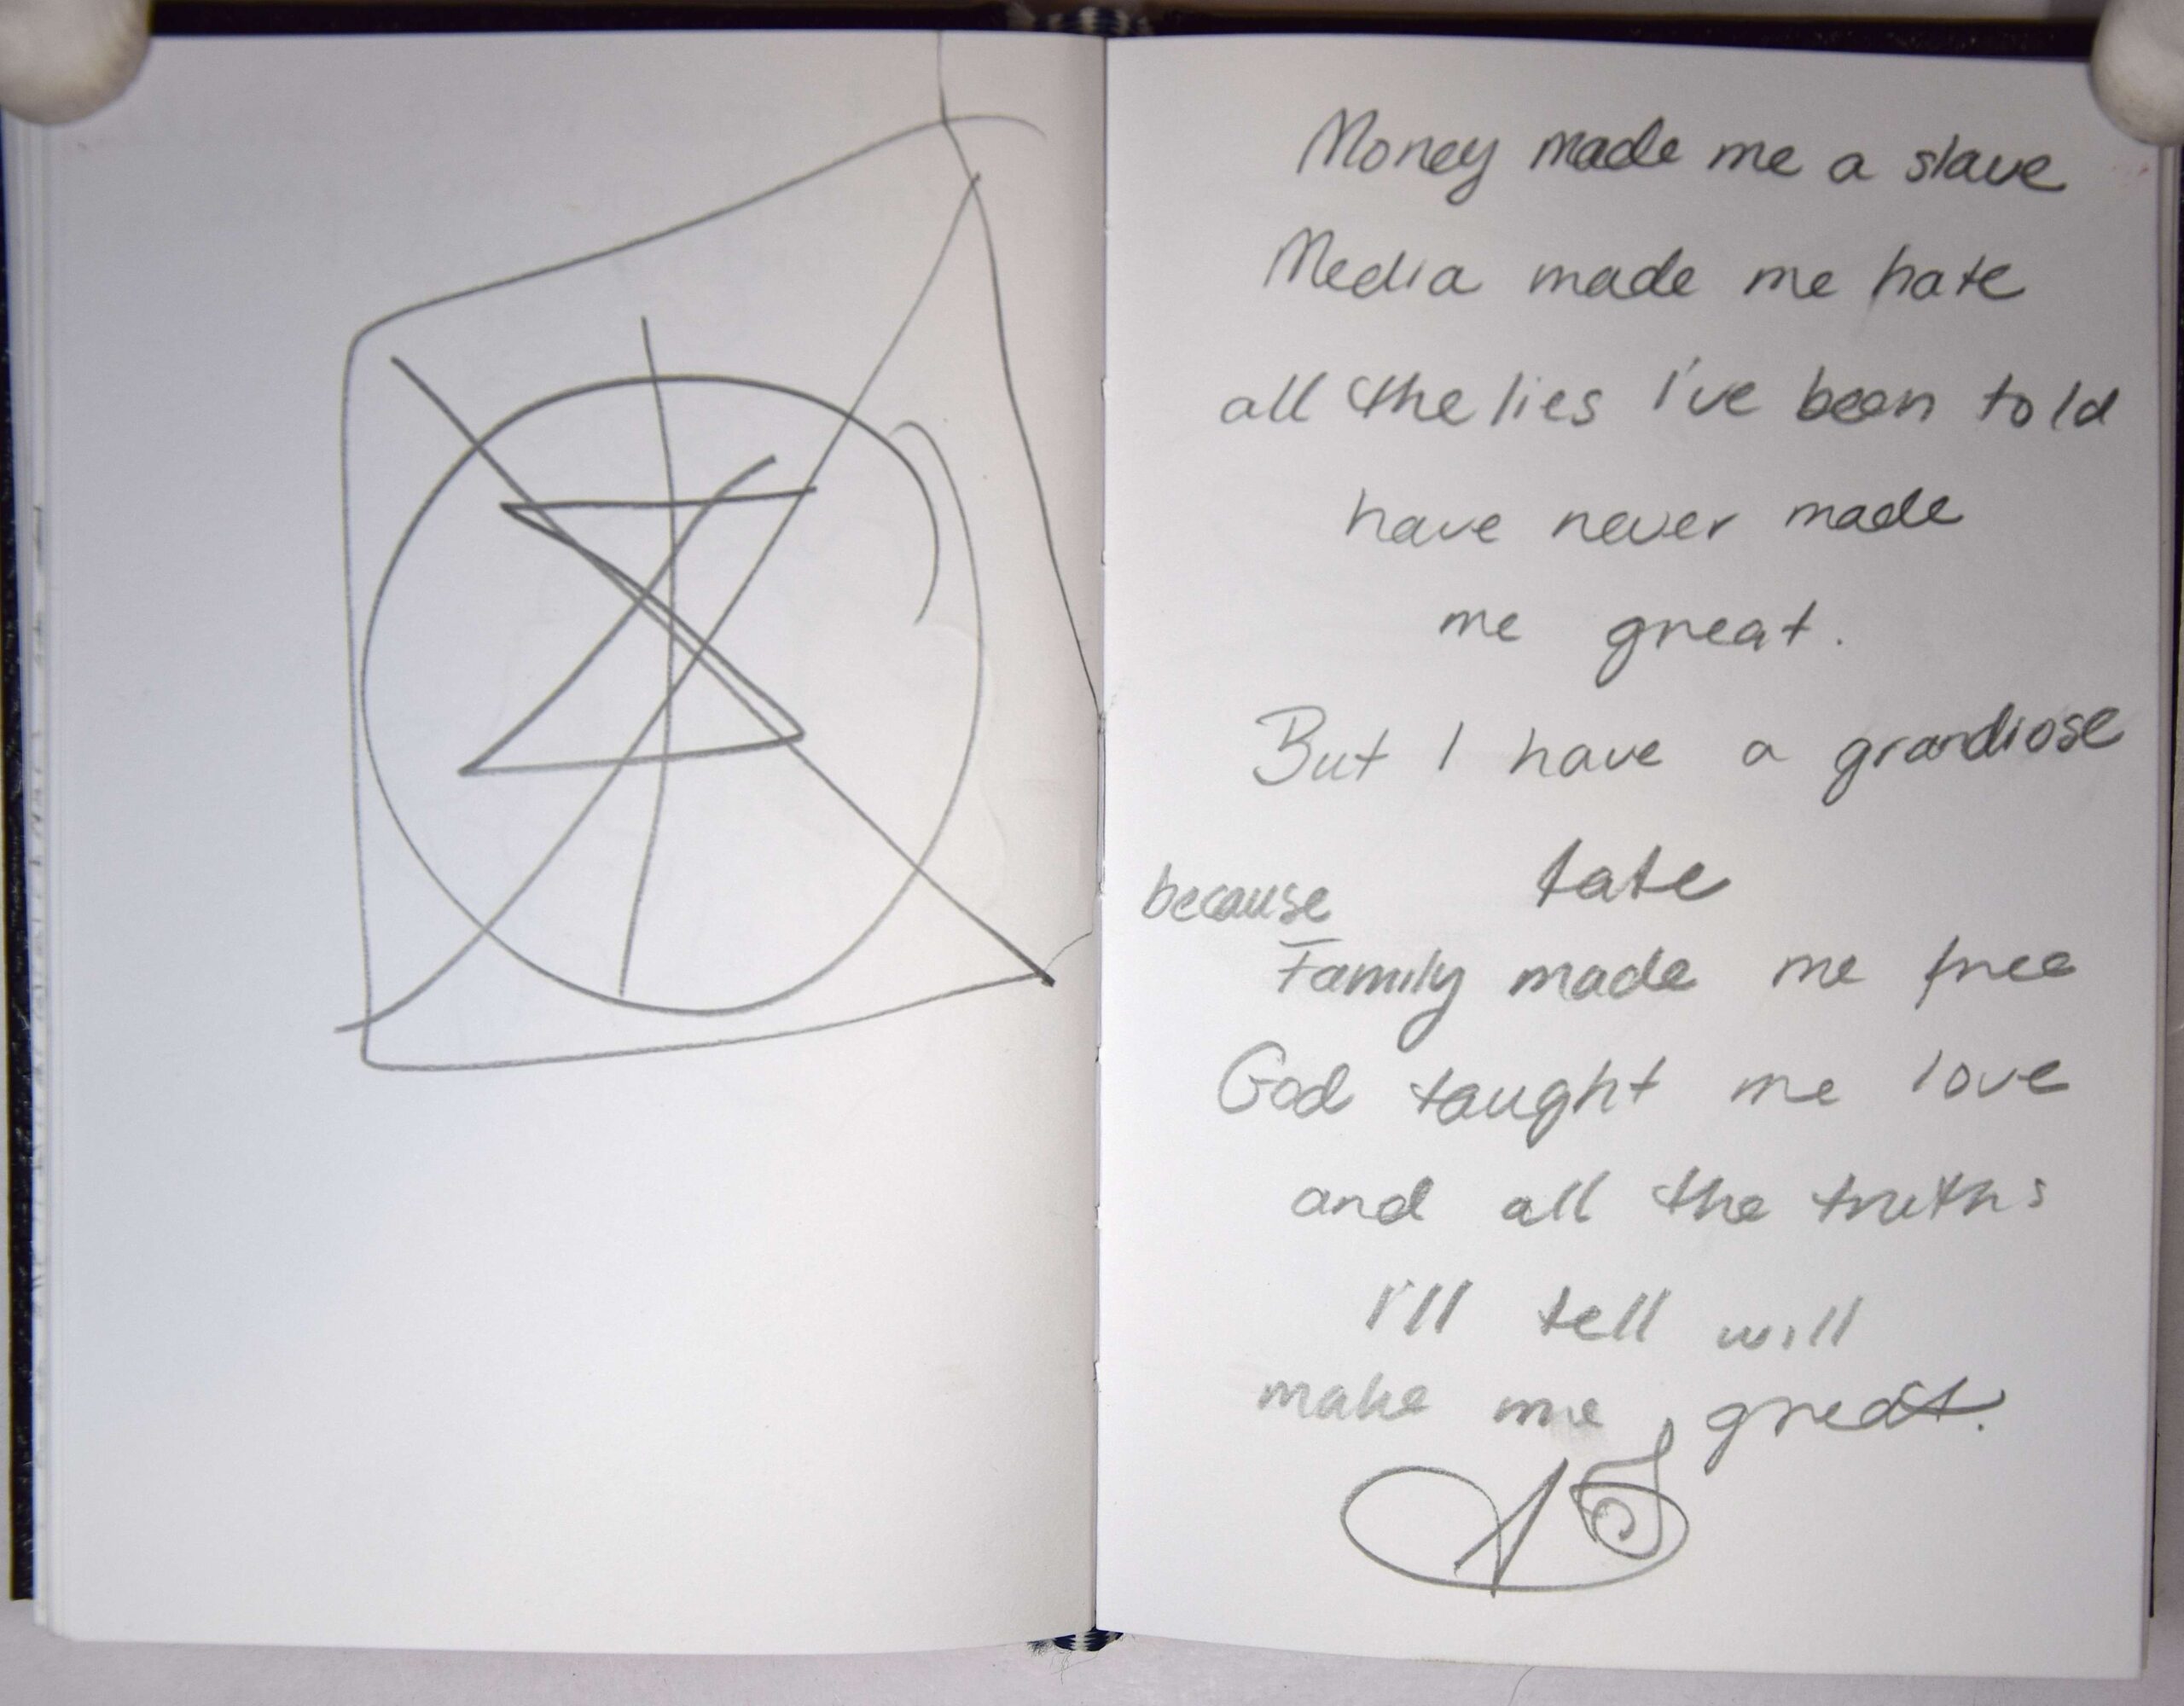 Money made me a slave
Media made me hate
all the lies I've been told
have never made
me great.
But I have a grandiose
fate
because
Family made me free
God taught me love
and all the truths
I'll tell will
make me great.